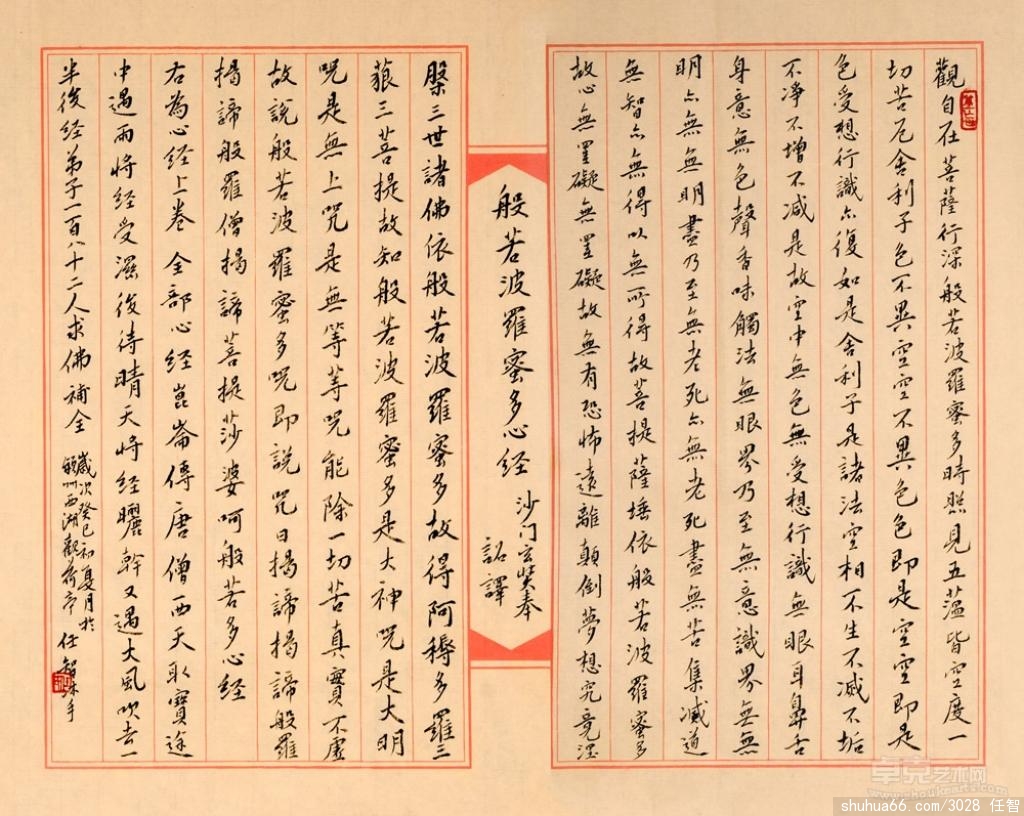 觀自在菩薩行深般若波羅蜜多時照見五蘊皆空度一
切苦厄舍利子色不異空空不異色色即是空空即是
色受想行識亦復如是舍利子是諸法空相不生不滅不垢
不淨不增不减是故空中無色無受想行識無眼耳鼻舌
身意無色聲香味觸法無眼界乃至無意識界無無
明亦無無明盡乃至無老死亦無老死盡無苦集滅道
無智亦無得以無所得故菩提薩埵依般若波羅蜜多
故心無罣礙無罣礙故無有恐怖遠離顛倒夢想究竟涅
般若波羅蜜多心经
沙门玄奘奉
詔譯
槃三世諸佛依般若波羅蜜多故得阿耨多羅三
藐三菩提故知般若波羅蜜多是大神咒是大明
咒是無上咒是無等等咒能除一切苦真實不虛
故說般若波羅蜜多咒即說咒曰揭諦揭諦般羅
揭諦般羅僧揭諦菩提莎婆呵般若多心经
右為心经上卷全部心经崑崙傳唐僧西天取寶途
中遇雨將经受濕後待晴天將经曬幹又遇大風吹去一
半後经弟子一百八十二人求佛補全
歲次癸巳初夏月於
西湖觀荷亭任智
手
卓克艺术网
www.zhuokearts.com
shuhua66.com/3028 任智